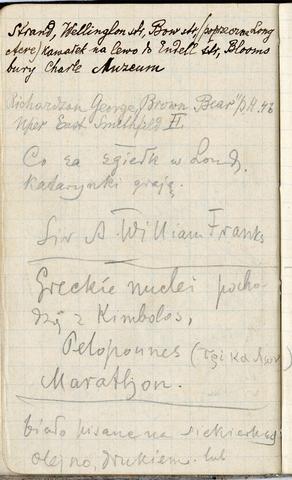 Strand, Wellington str, Bow str, (poprzeczna Long
Acre) kawałek na lewo do Endell str, Blooms
bury Charle Muzeum
Richardson George, Brown Bear
Uper East Smithfield
Co za zgiełk w Lond.
Katarynki grają.
Sir A William Franks
Greckie nuclei pocho
dzą z Kimbolos,
Peloponnes
Marathon.
biało pisane na siekierkach
olejno, drukiem. lub